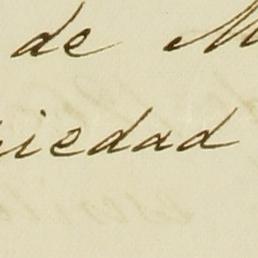 de M
iedad